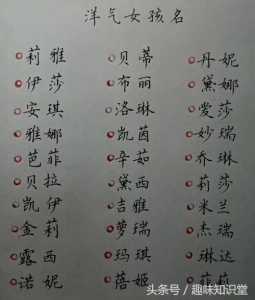 洋气女孩名
莉雅 贝蒂 丹妮
伊莎 布丽 黛娜
安琪 洛琳 爱莎
雅娜 凯茵 妙瑞
芭菲 辛如 乔琳
贝拉 黛西 莉莎
凯伊 吉雅 米兰
金莉 萝瑞 杰瑞
露西 玛琪 琳达
诺妮 蓓姬
头条号 / 趣味知识堂